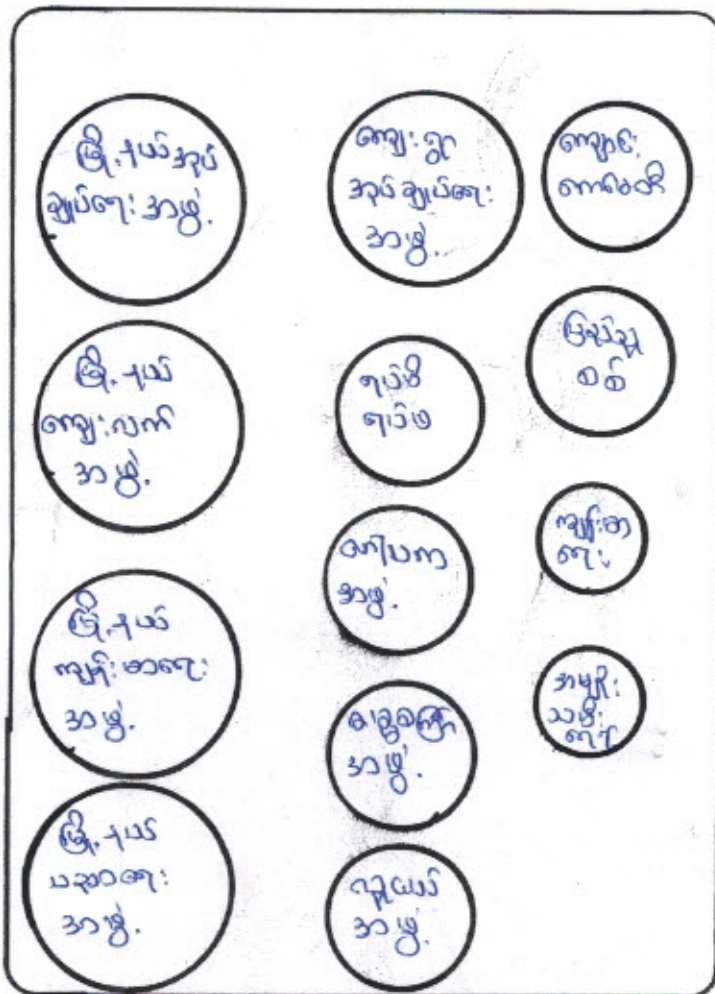 မြို့နယ်အုပ်
ချုပ်ရေးအဖွဲ့
မြို့နယ်
ကျေးလက်
အဖွဲ့
မြို့နယ်
ကျန်းမာရေး
အဖွဲ့
မြို့နယ်
ပညာရေး
အဖွဲ့
ကျေးရွာ
အုပ်ချုပ်ရေး
အဖွဲ့
ရပ်မိ
ရပ်ဖ
အဖွဲ့
အဖွဲ့
လူငယ်
အဖွဲ့
ကျောင်း
ကော်မတီ
ပြည်သူ့
စစ်
ကျန်းမာ
ရေး
အမျိုး
သမီး
ရေးရာ